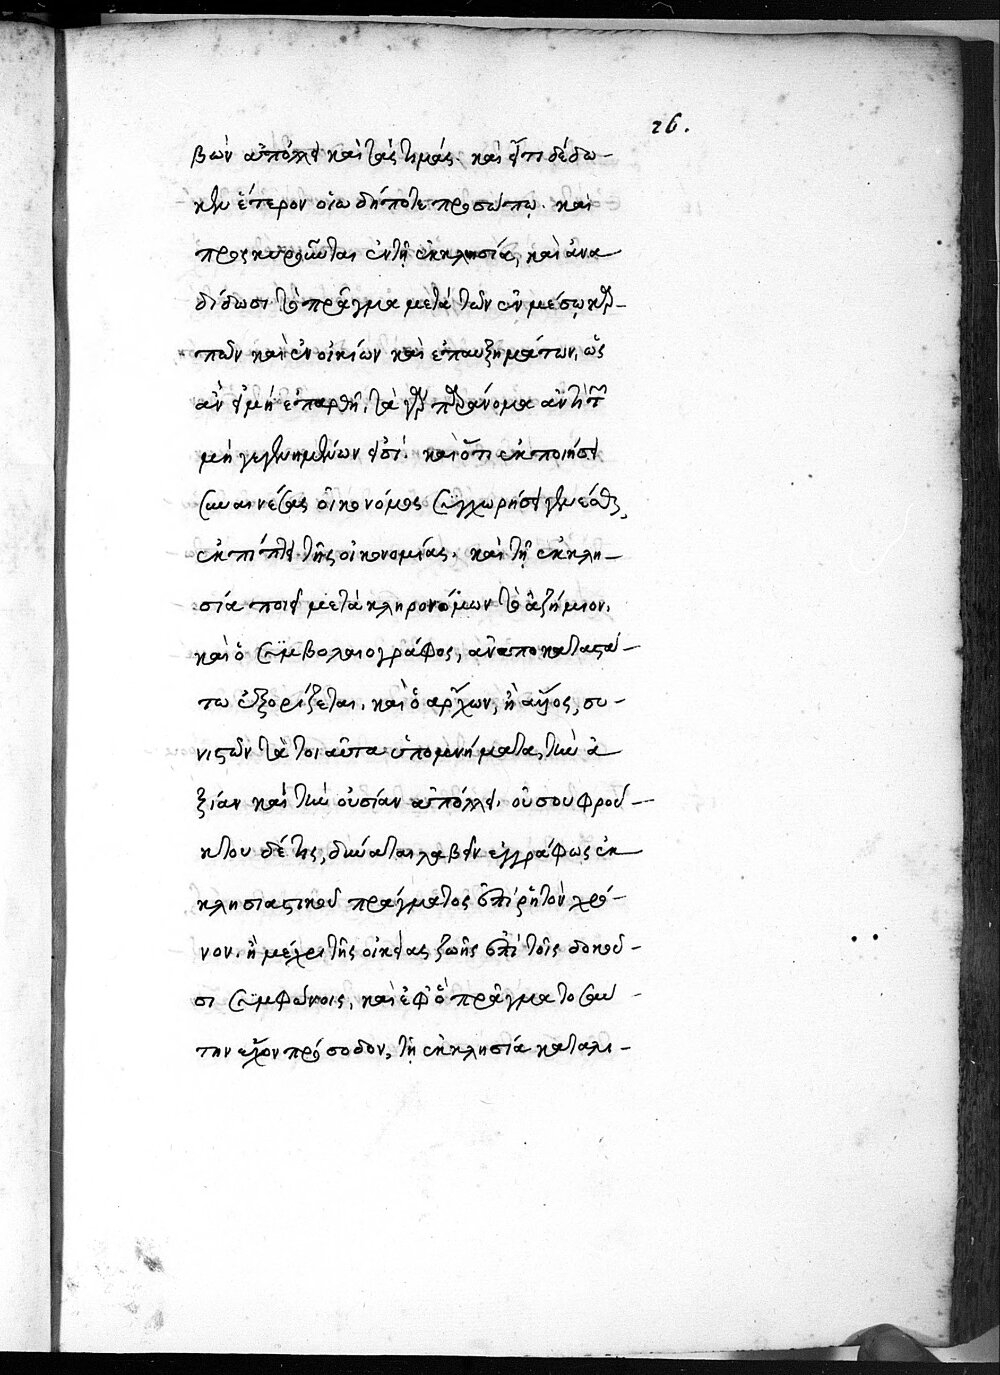 26.
βὼν ἀπόλλει καὶ τὰς τιμάς. καὶ εἴτι δέδω-
κεν ἑτέρον οἱωδήποτε προσώπῳ. καὶ
προσκυροῦται ἐν τῇ ἐκκλησία, καὶ ἀνα
δίδωσι τὸ πρᾶγμα μετὰ τῶν ἐν μέσῳ καρ-
πῶν καὶ ἐνοικίων καὶ ἐπαυξημάτων, ὡς
ἂν εἰ μὴ ἐπράθη, τὰ γὰρ παράνομα ἀντὶ τῶν
μὴ γεγενημένων εἰσί. καὶ ὅτι ἐκποιήσει
συναινέσας οἰκονόμος συγχωρήσει γενέσθαι,
ἐκπίπτει τῆς οἰκονομίας. καὶ τῇ ἐκκλη-
σία ποιεῖ μετὰ κληρονόμων τὸ ἀζήμιον.
καὶ ὁ συμβολαιογράφος, ἀναποκαταστά-
τω ἐξορίζεται. καὶ ὁ ἄρχων, ἢ ἄλλος, συ-
νιστῶν τὰ τοιαῦτα ὑπομνήματα, τὴν ἀ
ξίαν καὶ τὴν οὐσίαν ἀπόλλει. οὐσουφρού-
κτου δέ τις, δύναται λαβεῖν ἐγγράφως ἐκ
κλησιαστικοῦ πράγματος ἐπὶ ῥητὸν χρό-
νον. ἢ μέχρι τῆς οἰκείας ζωῆς ἐπὶ τοῖς δοκοῦ-
σι συμφώνοις, καὶ ἐφ' ὃ πρᾶγμα τοσαύ-
την ἔχον πρόσοδον, τῇ ἐκκλησία καταλι-